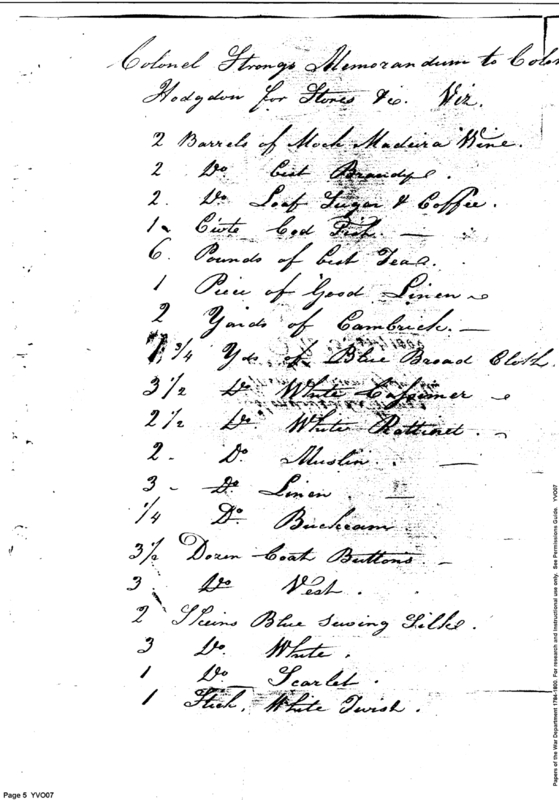 Colonel Strongs Memorandum to Colon
Hodgdon for Stores &c. Viz.
2 Barrels of Mock Madeira Wine.
2 Do best Brandy.
2. Do. Loaf Sugar & Coffee.
1 Cwte Cod Fish. —
6. Pounds of best Tea.
1 Piece of Good Linen
2 Yards of Cambrick. —
1 3/4 Yds of Blue Broad Cloth.
3 1/2 Do White Cassimer
2 1/2 Do White Rattinet. -
2 - Do. Muslin. —
3 - Do Linen. —
1/4 Do Buckram
3 1/2 Dozen Coat Buttons -
3. Do Vest.
2 Skeins Blue Sewing Silk.
3 Do. White.
1 Do Scarlet.
1 Stick. White Twist.
Page 5 YVO07
Papers of the War Department 1784-1800. For research and instructional use only. See Permissions Guide. YVO07